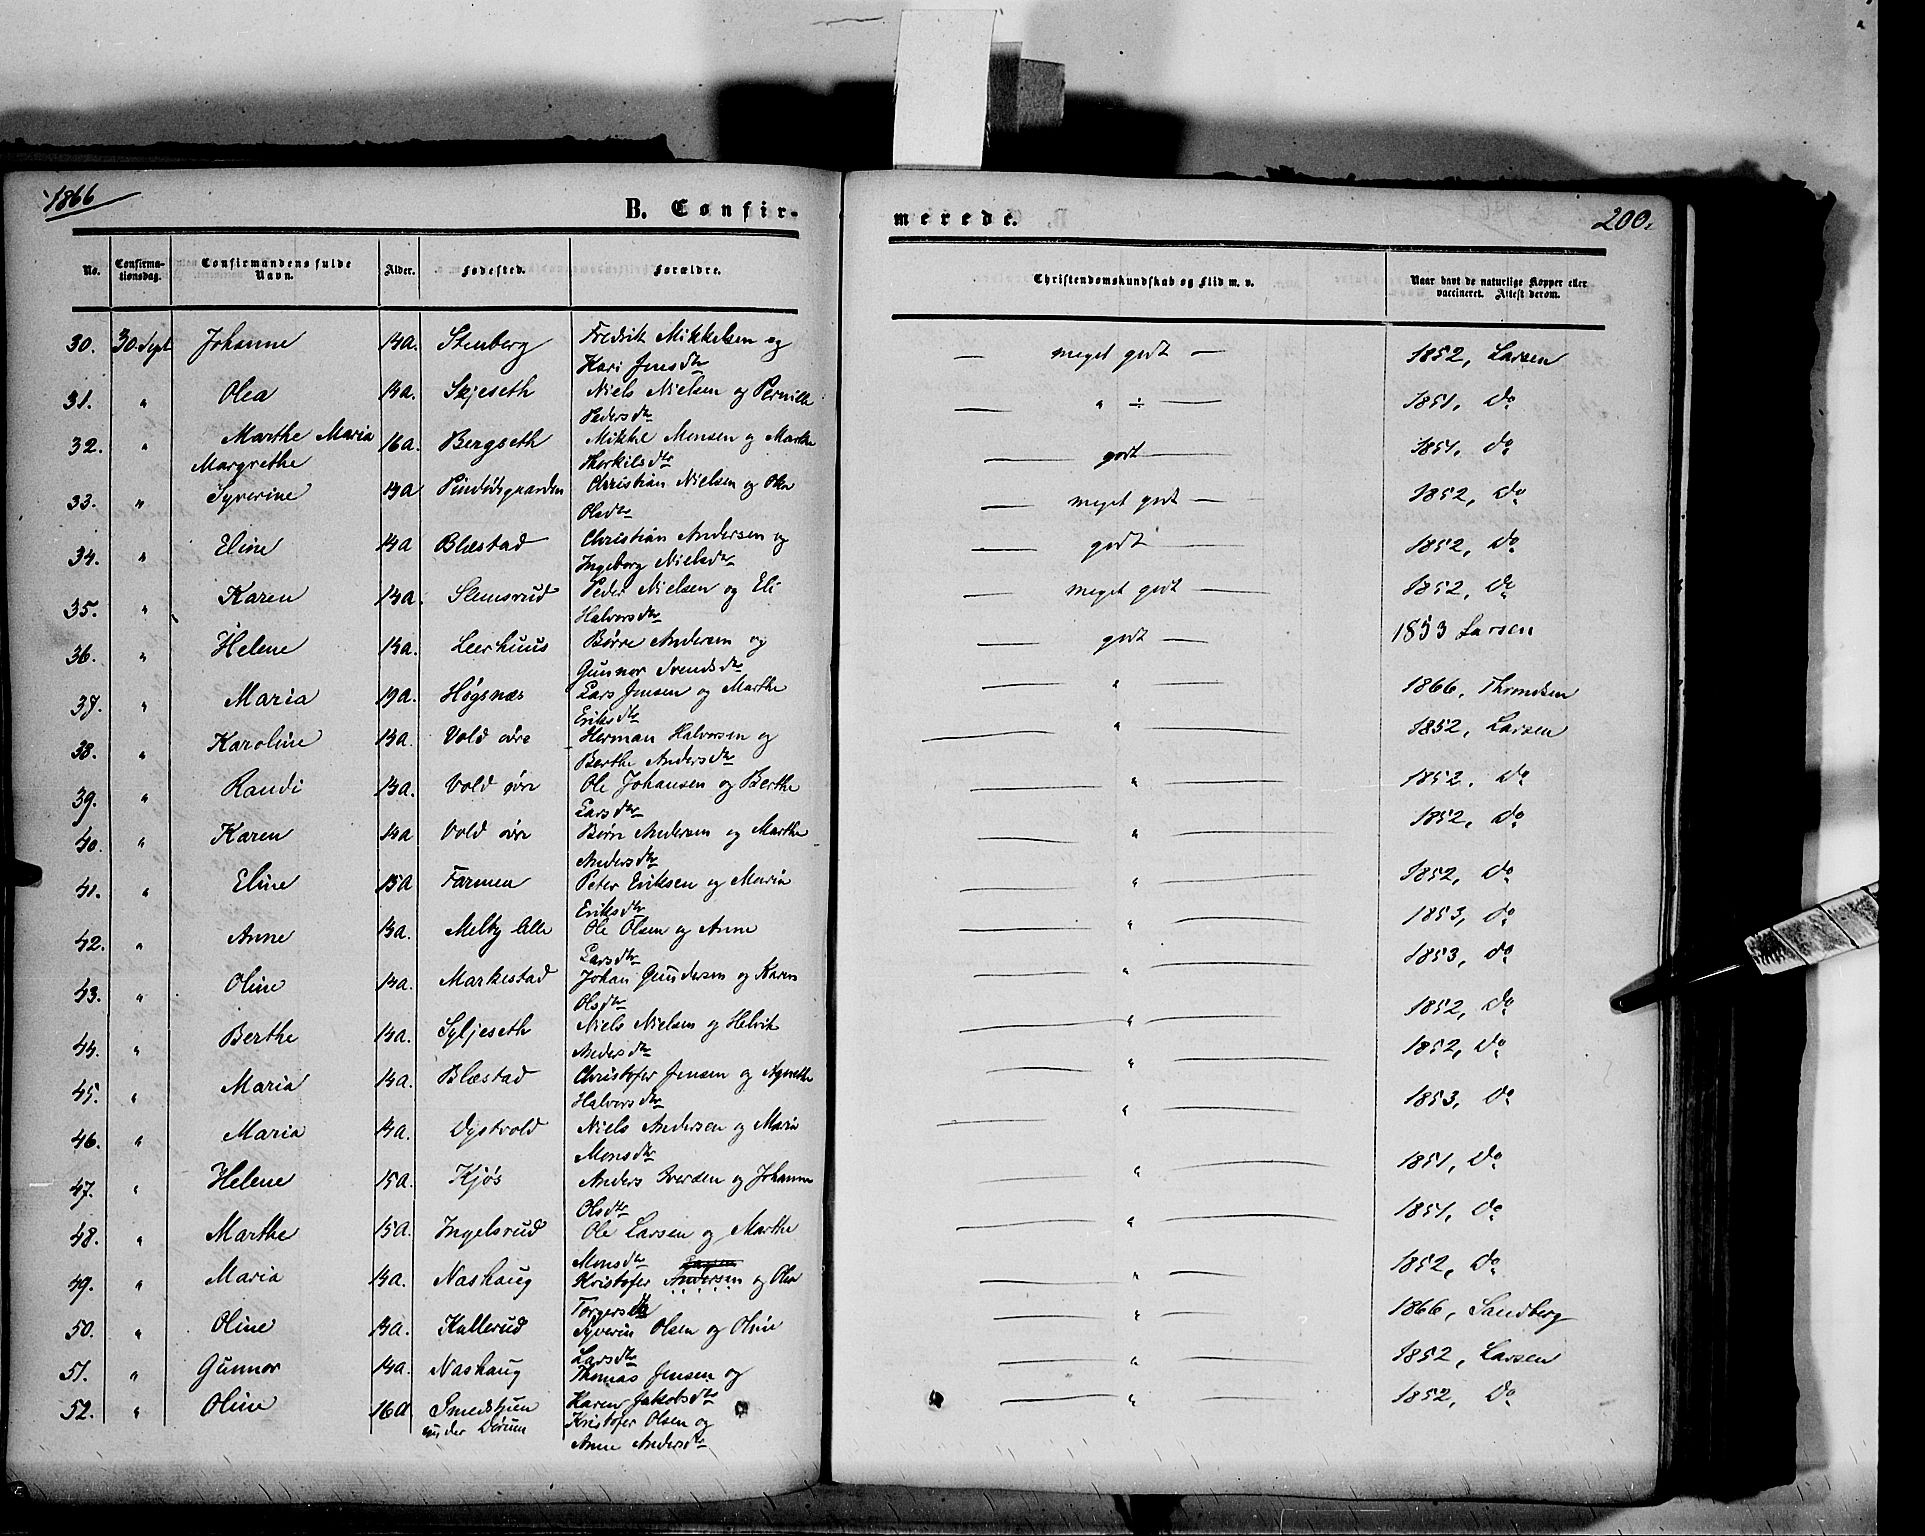 1866
B. Confir-
merede.
200.
No. Confirma-tionsdag. Confirmandens fulde Navn. Alder. Fødested. Forældre. Christendomskundskab og Flid m. v. Naar havt de naturlige Kopper eller vaccineret. Attest derom.
30. 30 Sept Johanne 14a. Stenberg Fredrik Mikkelsen og — meget godt — 1852, Larsen
Kari Jensdtr
31. " Olea 14a. Skjeseth Niels Nielsen og Pernille — " ÷ — 1851, do
Pedersdtr
32. " Marthe Maria 16a. Bergseth Mikkel Monsen og Marthe — godt — 1851, do
Margrethe Thorkilsdtr
33. " Syverine 14a Christian Nielsen og Olea — meget godt — 1852, do
Olsdtr
34. " Eline 14a Blæstad Christian Andersen og — godt — 1852, do
Ingeborg Nielsdtr
35. " Karen 14a. Slemsrud Peder Nielsen og Eli — meget godt — 1852, do
Halvorsdtr
36. " Helene 14a. Leerhuus Børre Andersen og — godt — 1853 Larsen
Gunnor Svendsdtr
37. " Maria 19a. Høgsnæs Lars Jensen og Marthe — " — 1866, Thomesen
Eriksdtr
38. " Karoline 14a. Vold øvre Herman Halvorsen og — " — 1852, Larsen
Berthe Andersdtr
39. " Randi 14a. Vold øvre Ole Johansen og Berthe — " — 1852, do
Larsdtr
40. " Karen 14a Vold øvre Børre Andersen og Marthe — " — 1852, do
Andersdtr
41. " Eline 15a Farmen Peter Eriksen og Maria — " — 1852, do
Eriksdtr
42. " Anne 14a. Melby lille Ole Olsen og Anne — " — 1853, do
Larsdtr
43. " Oline 14a. Markestad Johan Gundersen og Karen — " — 1853, do
Olsdtr
44. " Berthe 14a. Syljeseth Niels Nielsen og Helvik — " — 1852, do
Andersdtr
45. " Maria 14a. Blæstad Christofer Jensen og Agnethe — " — 1852, do
Halvorsdtr
46. " Maria 14a. Dystvold Niels Andersen og Maria — " — 1853, do
Monsdtr
47. " Helene 15a. Kjøs Anders Iversen og Johanne — " — 1851, do
Olsdtr
48. " Marthe 15a. Ingelsrud Ole Larsen og Marthe — " — 1851, do
Monsdtr
49. " Maria 14a. Nashaug Kristofer Andersen og Olea — " — 1852, do
Torgersdtr
50. " Oline 14a. Kallerud Syverin Olsen og Oline — " — 1866, Sandberg
Larsdtr
51. " Gunnor 14a. Nashaug Thomas Jensen og — " — 1852, Larsen
Karen Jakobsdtr
52. " Oline 16a Smedstuen Kristofer Olsen og — " — 1852, do
under Dørum Anne Andersdtr